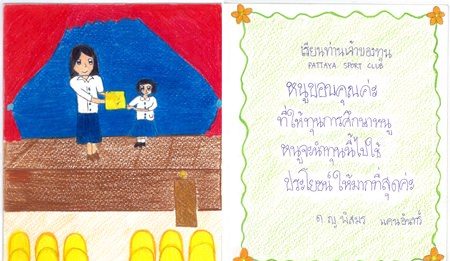 เรียนท่านเจ้าของทุน
PATTAYA SPORT CLUB
หนูขอบคุณค่ะ
ที่ให้ทุนการศึกษาหนู
หนูจะนำทุนนี้ไปใช้
ประโยชน์ให้มากที่สุดค่ะ
ด ญ พิสมร